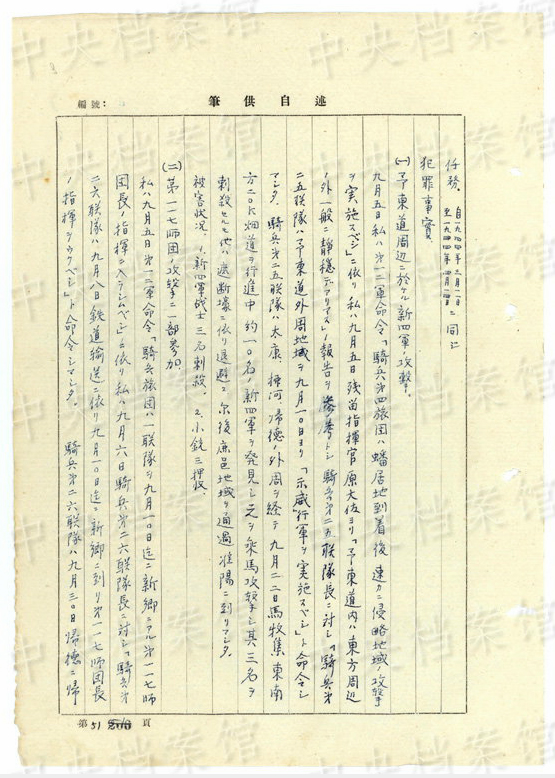 編號:
述自供筆
任務. 自一九四四年三月一日 至一九四四年 ニ同ジ
犯罪事實
(一) 予東道周辺ニ於ケル新四軍ノ攻撃.
九月五日私ハ第一二軍命令「騎兵第四旅団ハ蟠居地到着後速カニ侵略地域ノ攻撃
ヲ実施スベシ」ニ依リ私ハ九月五日残苗指揮官原大佐ヨリ「予東道内ハ東方周辺
ノ外一般ニ静穏デアリマス」ノ報告ヲ参考トシ騎兵第二五联隊長ニ対シ「騎兵第
二五联隊ハ予東道外周地域ヲ九月一〇日ヨリ「示威行軍ヲ実施スベシ」ト命令シ
マシタ. 騎兵第二五联隊ハ太康 柘河 帰徳ノ外周ヲ経テ九月二二日馬牧集東南
方二〇K畑道ヲ行進中約一〇名ノ新四軍ヲ発見シ之ヲ乗馬攻撃シ其三名ヲ
刺殺セルモ他ハ遮断壕ニ依リ退避シ尓後鹿邑地域ヲ通過淮陽ニ到リマシタ.
被害状况 1.新四軍战士三名刺殺. 2.小銃三押収.
(二) 第一一七師団ノ攻撃ニ一部参加.
私ハ九月五日第一二軍命令「騎兵旅団ハ一联隊ヲ九月一〇日迄ニ新郷ニアル第一一七師
団長ノ指揮ニ入ラシムベシ」ニ依リ私ハ九月六日騎兵第二六联隊長ニ対シ「騎兵第
二六联隊ハ九月八日鉄道輸送ニ依リ九月一〇日迄ニ新郷ニ到リ第一一七師団長
ノ指揮ヲウクベシ」ト命令シマシタ. 騎兵第二六联隊ハ九月三〇日帰徳ニ帰
第51頁
中央档案馆